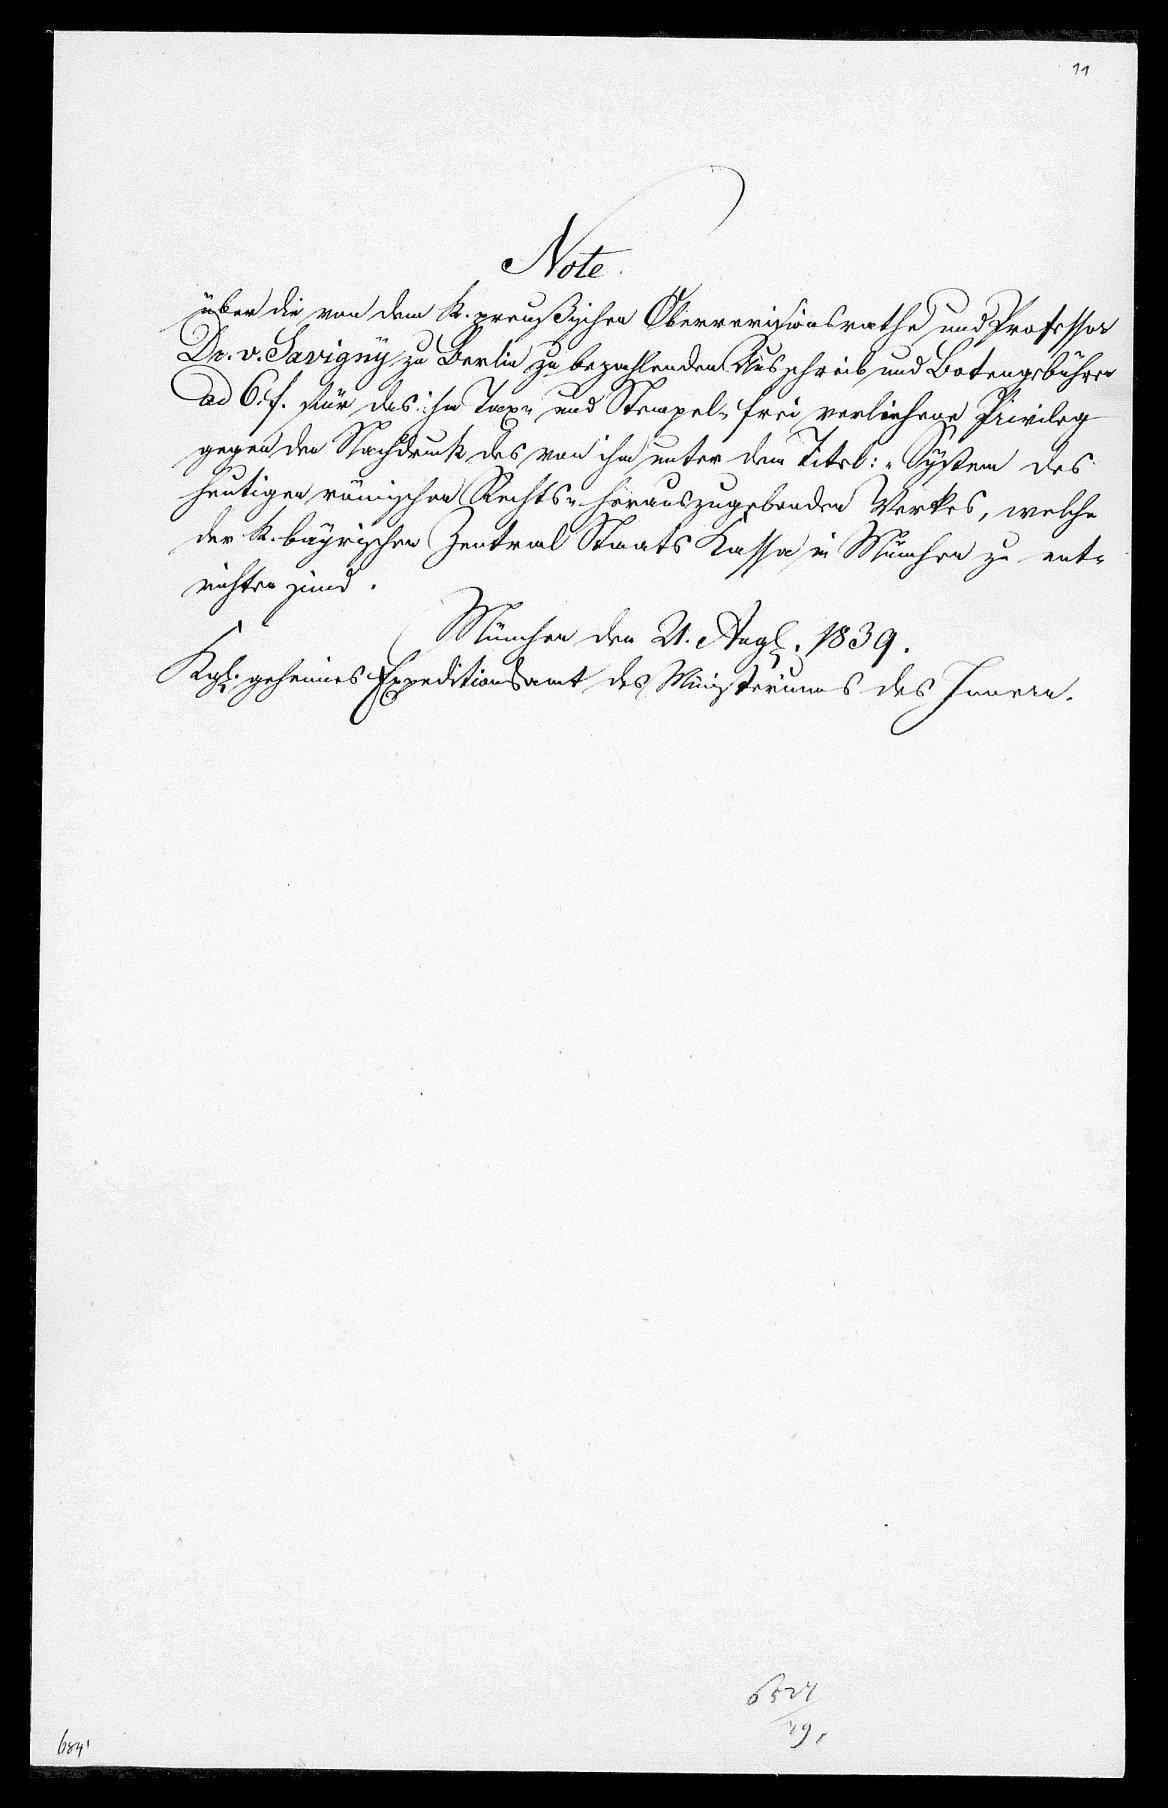 11
Note.
über die von dem K. preußischen Oberrevisionsrathe und Professor
Dr. v. Savigny zu Berlin zu bezahlenden Ausschreib und Botengebühren
ad 6 f. für das ihm Tax- und Stempel-frei verliehene Privileg
gegen den Nachdruck des von ihm unter dem Titel: „System des
heutigen römischen Rechts" herauszugebenden Werkes, welche
der K. bayrischen Zentral Staats Kassa in München zu ent-
richten sind.
München den 21. Aug. 1839.
Kgl. geheimes Expeditionsamt des Ministeriums des Innern.